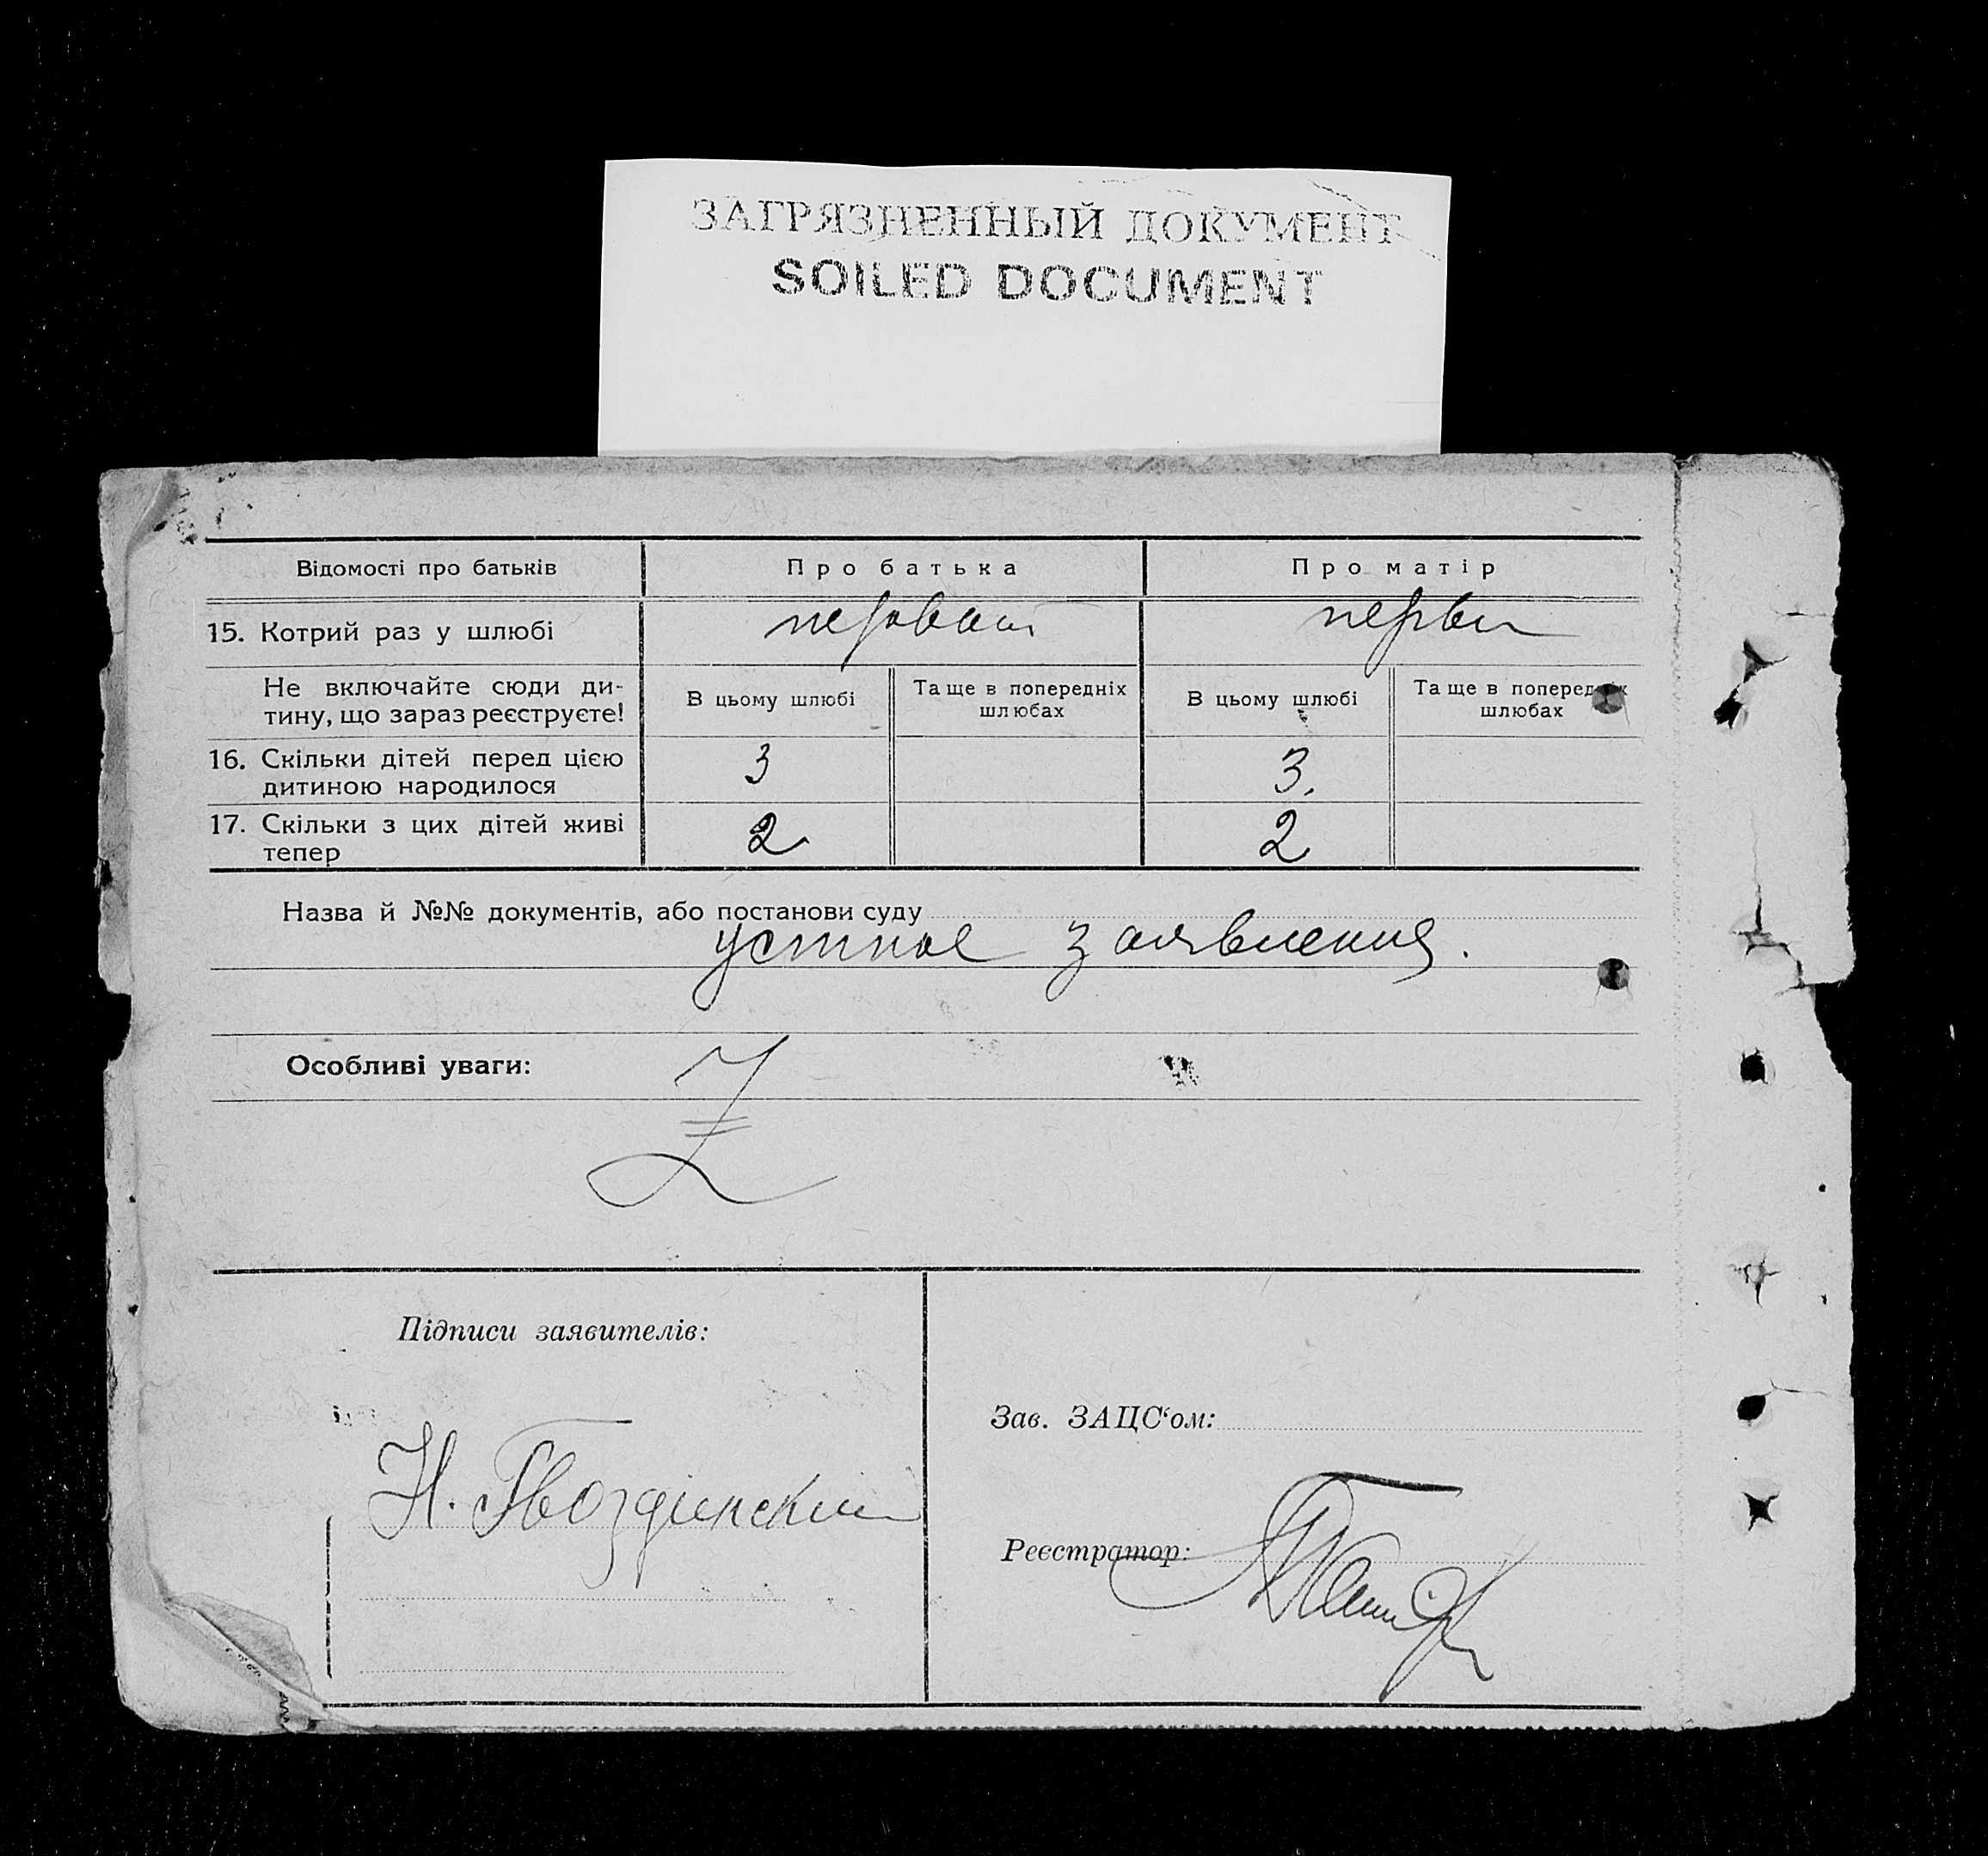 ЗАГРЯЗНЕННЫЙ ДОКУМЕНТ
SOILED DOCUMENT
Відомості про батьків Про батька Про матір
15. Котрий раз у шлюбі
Не включайте сюди ди-
тину, що зараз реєструєте!
В цьому шлюбі Та ще в попередніх шлюбах В цьому шлюбі Та ще в попередніх шлюбах
16. Скільки дітей перед цією
дитиною народилося 3 3.
17. Скільки з цих дітей живі
тепер 2 2
Назва й №№ документів, або постанови суду
устное заявления.
Особливі уваги:
Z
Підписи заявителів:
Зав. ЗАЦС'ом:
Н. Гвоздинский
Реєстратор: